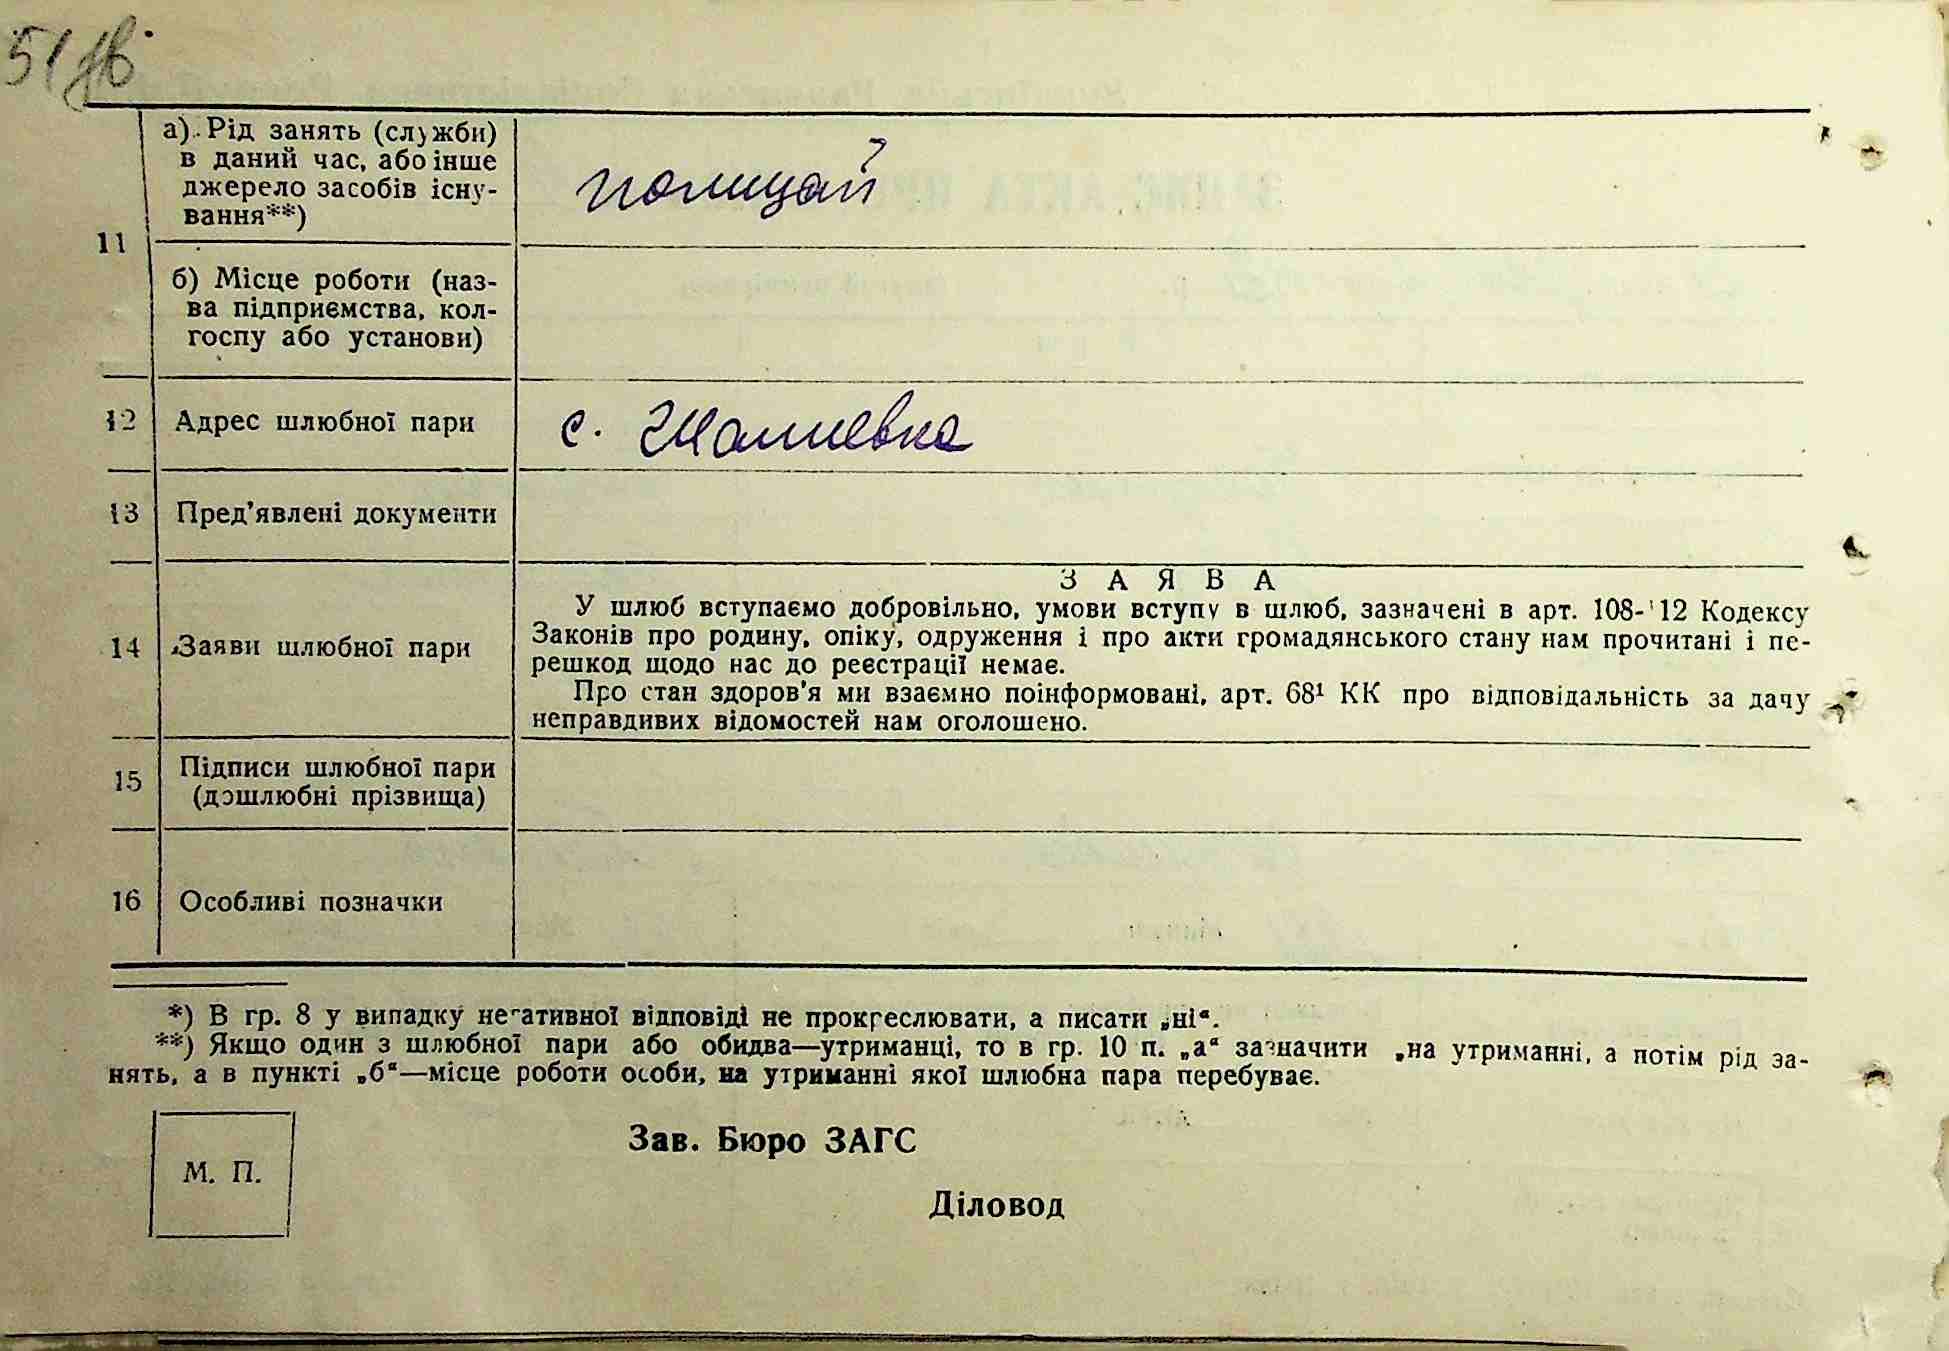 51 зв.
11
а) Рід занять (служби)
в даний час, або інше
джерело засобів існу-
вання**)
полицай
б) Місце роботи (наз-
ва підприємства, кол-
госпу або установи)
12 Адрес шлюбної пари
с.
13 Пред'явлені документи
14 Заяви шлюбної пари
ЗАЯВА
У шлюб вступаємо добровільно, умови вступу в шлюб, зазначені в арт. 108-112 Кодексу
Законів про родину, опіку, одруження і про акти громадянського стану нам прочитані і пе-
решкод щодо нас до реєстрації немає.
Про стан здоров'я ми взаємно поінформовані, арт. 68¹ КК про відповідальність за дачу
неправдивих відомостей нам оголошено.
15 Підписи шлюбної пари
(дошлюбні прізвища)
16 Особливі позначки
*) В гр. 8 у випадку негативної відповіді не прокреслювати, а писати „ні“.
**) Якщо один з шлюбної пари або обидва—утриманці, то в гр. 10 п. „а“ зазначити „на утриманні, а потім рід за-
нять, а в пункті „б“—місце роботи особи, на утриманні якої шлюбна пара перебуває.
М. П.
Зав. Бюро ЗАГС
Діловод